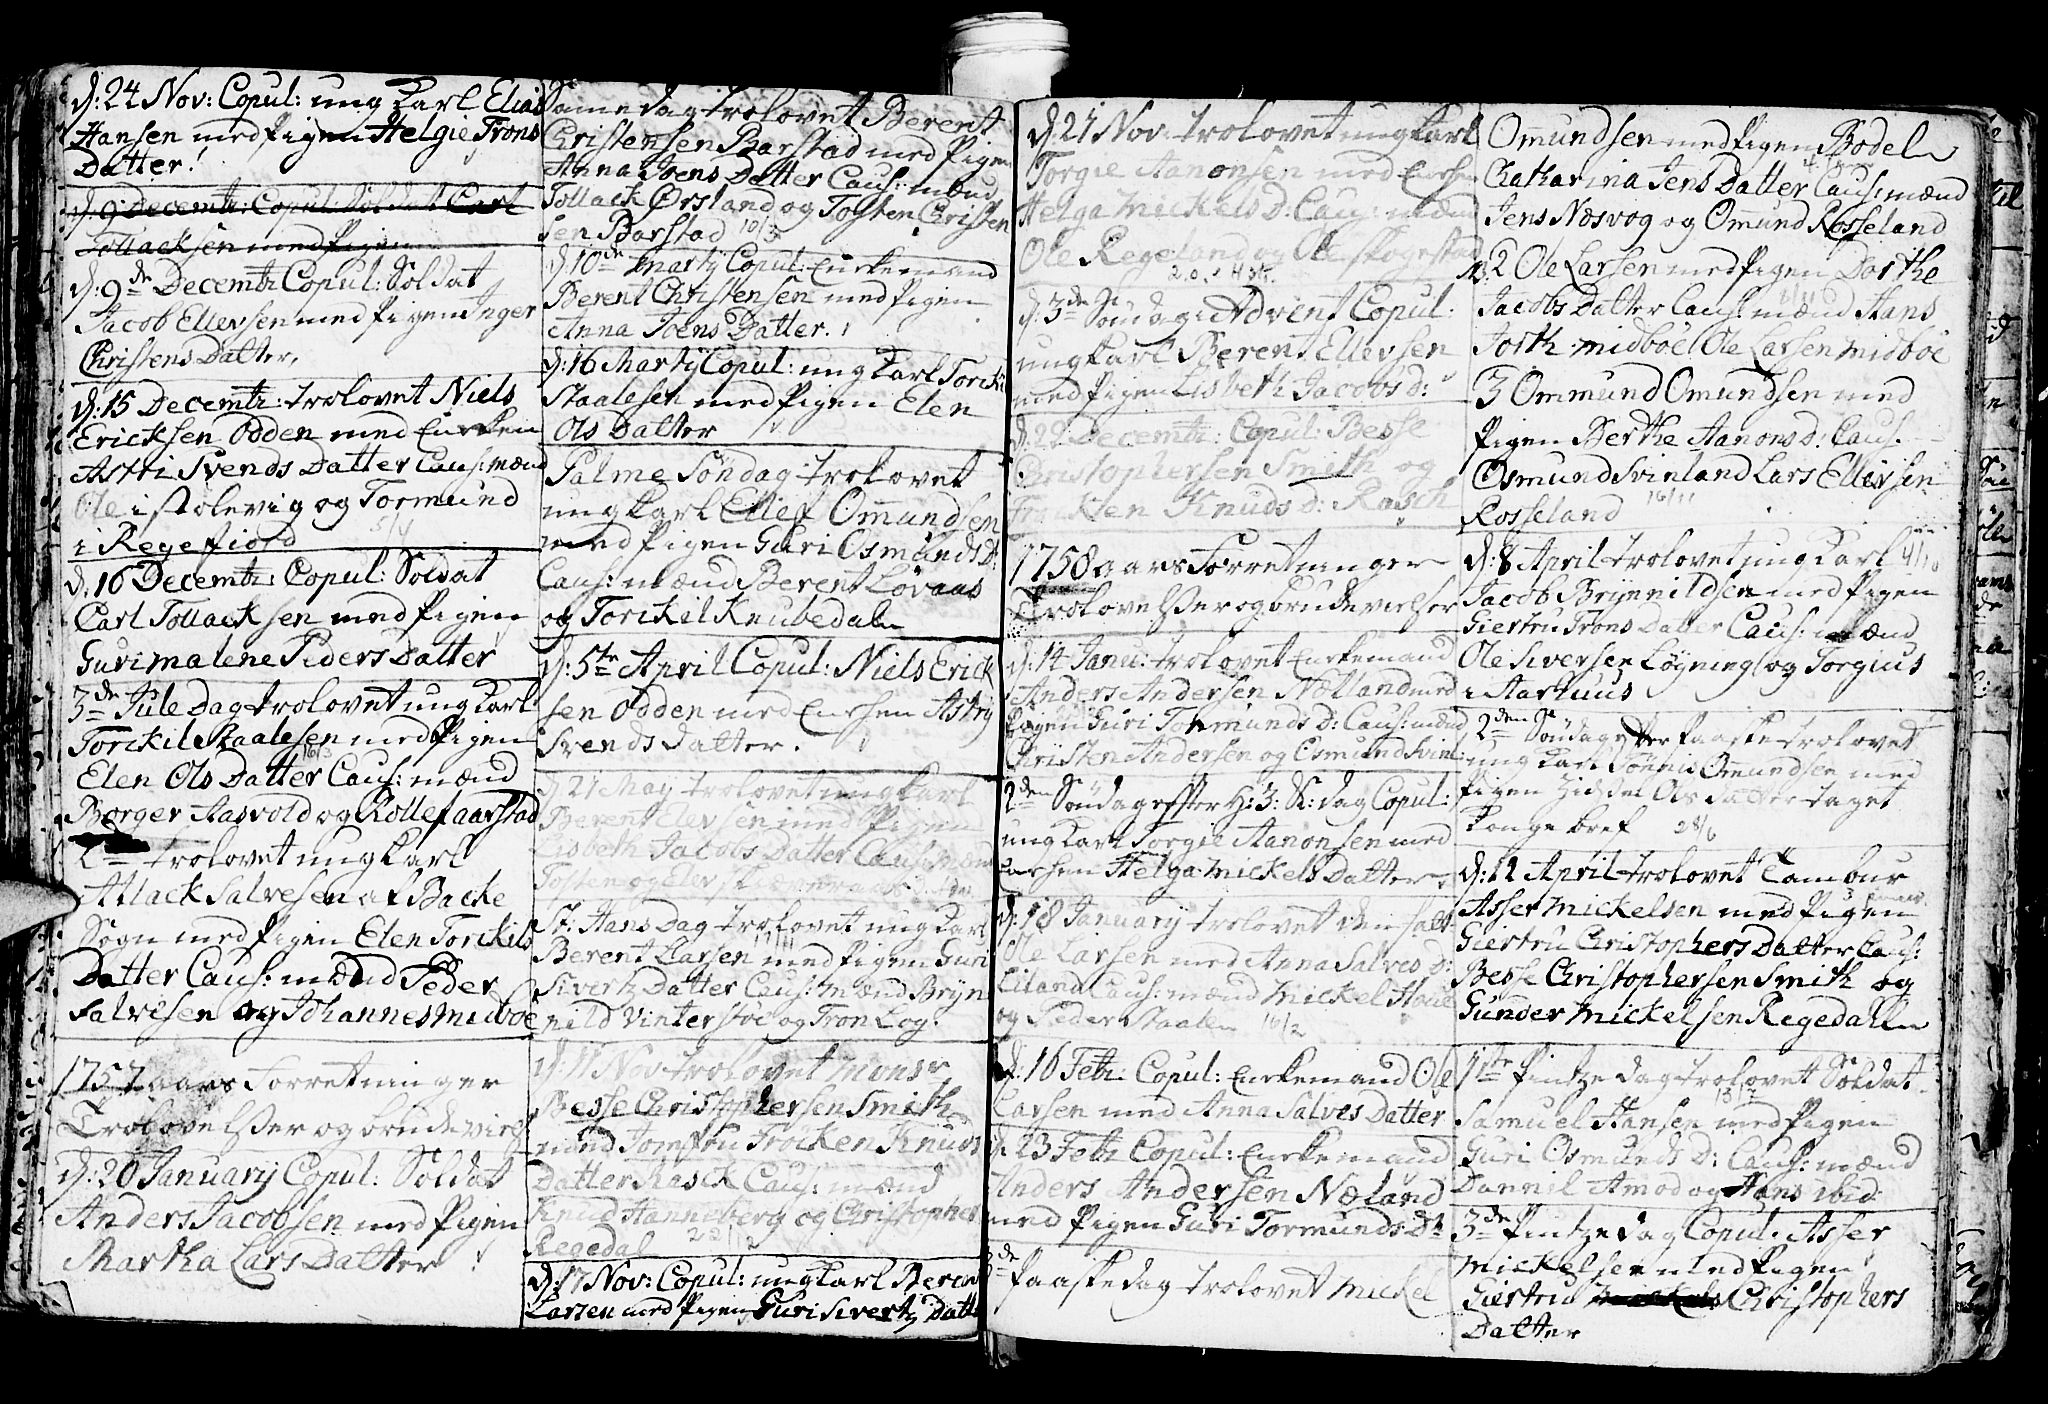 d: 24 Nov: Copul: ung Karl Elias
Hansen med Pigen Helgie Trons
Datter!
d: 9 Decembr: Copul: Soldat Carl
Tollacksen med Pigen
d: 9de Decembr Copul: Soldat
Jacob Ellevsen med Pigen Inger
Christens Datter,
d: 15 Decembr: trolovet Niels
Ericksen Odden med Encken
Astri Svends Datter Caus: mænd
Ole i Stolevig og Tormund
i Regefiord 5/4
d: 16 Decembr: Copul: Soldat
Carl Tollacksen med Pigen
Guri malene Peders Datter
3de Jule Dag trolovet ung Karl
Torckil Staalesen med Pigen
16/3
Elen Ols Datter Caus: mænd
Borger Aasvold og Rollef aarstad
trolovet ung Karl
Atlack Salvesen af Backe
Sogn med Pigen Elen Torckils
Datter Caus: mænd Peder
Salvesen og Johannes midboe
1757 aars Forretninger
Trolovelsser og brudeviels
d: 20 January Copul: Soldat
Anders Jacobsen med Pigen
Martha Lars Datter
Same dag trolovet Berent
Christensen Barstad med Pigen
Anna Joens Datter Caus: mænd
Tollack Ørsland og Tosten Christen
sen Barstad 10/3
d: 10de Martij Copul: Enckemand
Berent Christensen med Pigen
Anna Joens Datter.
d: 16 Martij Copul: ung Karl Torckil
Staalesen med Pigen Elen
Ols Datter
Palme Söndag trolovet
ung Karl Ellef Omundsen
med Pigen Guri Osmunds D:
Caus: mænd Berent Lovaas
og Torckil Knubedal
d: 5te April Copul: Niels Erick
sen Odden med Encken Astrij
Svends datter.
d 21 May trolovet ung Karl
Berent Elevsen med Pigen
Lisbeth Jacobs Datter Caus: mænd
Tosten og Elev Skaveraas
St: Hans Dag trolovet ung Karl
17/11
Berent Larsen med Pigen Guri
Sivertz Datter Caus: mænd Bryn
nild Vinterstoe og Tron Log.
d: 11 Nov trolovet Monsr
Besse Christophersen Smith
med Jomfru Fröcken Knuds
Datter Rasck Caus: mænd
Knud Hanneberg og Christopher
Regedal 22/12
d: 17 Nov: Copul: ung Karl Berent
Larsen med Pigen Guri Sivertz Datter
d: 21 Nov: trolovet ung Karl
Torgie Aanonsen med Encken
Helga Mickels D: Caus: mænd
Ole Regeland og Ole Skogestad
d: 3de Söndag i Advent Copul:
ung Karl Berent Ellevsen
med Pigen Lisbeth Jacobs D:
d: 22 Decembr: Copul: Besse
Christophersen Smith og
Frocken Knuds D: Rasch
1758 aars Forretninger
Trolovelsser og brudevielser
d: 14 Janu: trolovet Enckemand
Anders Andersen Nælland med
Pigen Guri Tormunds D: Caus: mænd
Christen Andersen og Osmund Svinl:
2den Söndag efter H: 3: K: dag Copul:
ung Karl Torgie Aanonsen med
Encken Helga Mickels Datter,
d: 18 January trolovet
Ole Larsen med Anna Salves D:
Eiland Caus: mænd Mickel
og Peder Staale 16/2
d: 16 Febr: Copul: Enckemand Ole
Larsen med Anna Salves Datter
d: 23 Febr: Copul: Enckemand
Anders Andersen Næland
med Pigen Guri Tormunds Dr
3de Paaskedag trolovet Mickel
Omundsen med Pigen Bodel
Chatharina Jens Datter Caus: mænd
Jens Næsvog og Omund Rosseland
No: 2 Ole Larsen med Pigen Dorthe
Jacobs Datter Caus: mænd Hans
Jorth midboe Ole Larsen midboe
3 Ommund Omundsen med
Pigen Berthe Aanons d: Caus.
Osmund Svinland Lars Ellevsen
Rosseland 16/11
d: 8 April trolovet ung Karl
Jacob Brynnildsen med Pigen
Giertru Trons Datter Caus: mænd
Ole Siversen Løgning og Torgius
i Aarhuus
2den Söndag efter Paaske trolovet
ung Karl Tönnes Omundsen med
Pigen Zidsel Ols datter taget
Konge bref 28/6
d: 12 April trolovet Tambur
Asser Mickelsen med Pigen
Giertru Christophers Datter Caus:
Besse Christophersen Smith og
Gunder Mickelsen Regedahl
1ste Pintze dag trolovet Soldat
13/7
Samuel Hansen med Pigen
Guri Osmunds D: Caus: mænd
Danniel Amod og Hans ibid
3de Pintzedag Copul. Asser
Mickelsen med Pigen
Giertru Christophers
Datter